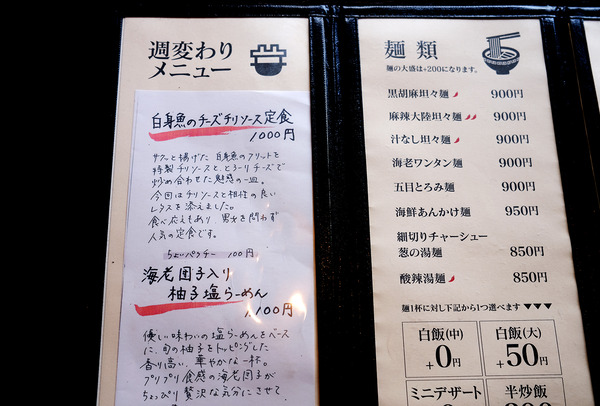 週変わり
メニュー
白身魚のチーズチリソース定食
1000円
サクッと揚げた 白身魚のフリットを
特製チリソースと、とろーりチーズで
炒め合わせた魅惑の一皿。
今回はチリソースと相性の良い
レタスを添えました。
食べ応えもあり、男女を問わず
人気の定食です。
ちょいパクチー 100円
海老団子入り
柚子塩らーめん
1,100円
優しい味わいの塩らーめんをベース
に、旬の柚子をトッピングした
香り高い、華やかな一杯。
プリプリ食感の海老団子が
ちょっぴり贅沢な気分にさせて
麺類
麺の大盛は+200になります。
黒胡麻坦々麺 900円
麻辣大陸坦々麺 900円
汁なし坦々麺 900円
海老ワンタン麺 900円
五目とろみ麺 900円
海鮮あんかけ麺 950円
細切りチャーシュー
葱の湯麺 850円
酸辣湯麺 850円
麺1杯に対し下記から1つ選べます ▼▼▼
白飯(中)
+0円
白飯(大)
+50円
ミニデザート
半炒飯